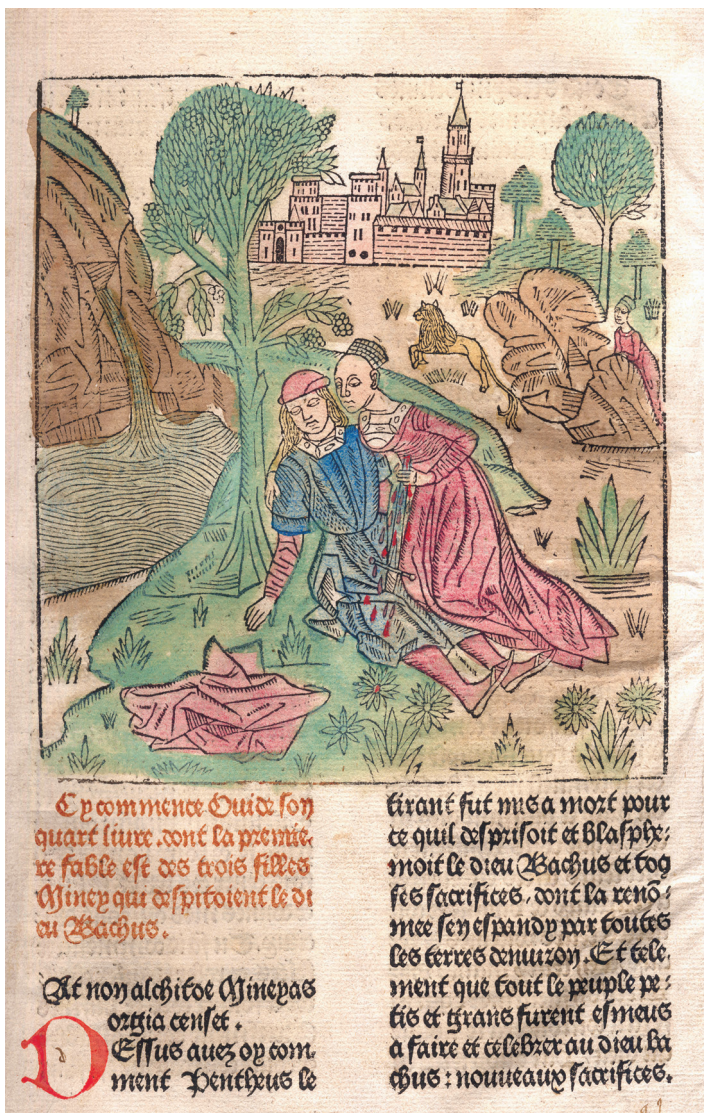 Cy commence Ouide son
quart liure. dont la premie-
re fable est des trois filles
Miney qui despitoient le di
eu Bachus.
At non alchitoe Mineyas
orgia censet.
DEssus auez oy com-
ment Pentheus le
tirant fut mis a mort pour
ce quil desprisoit et blasphe-
moit le dieu Bachus et tog
ses sacrifices, dont la renõ-
mee sen espandy par toutes
les terres denuiron. Et tele-
ment que tout le peuple pe-
tis et grans furent esmeus
a faire et celebrer au dieu ba
chus: nouueaux sacrifices.